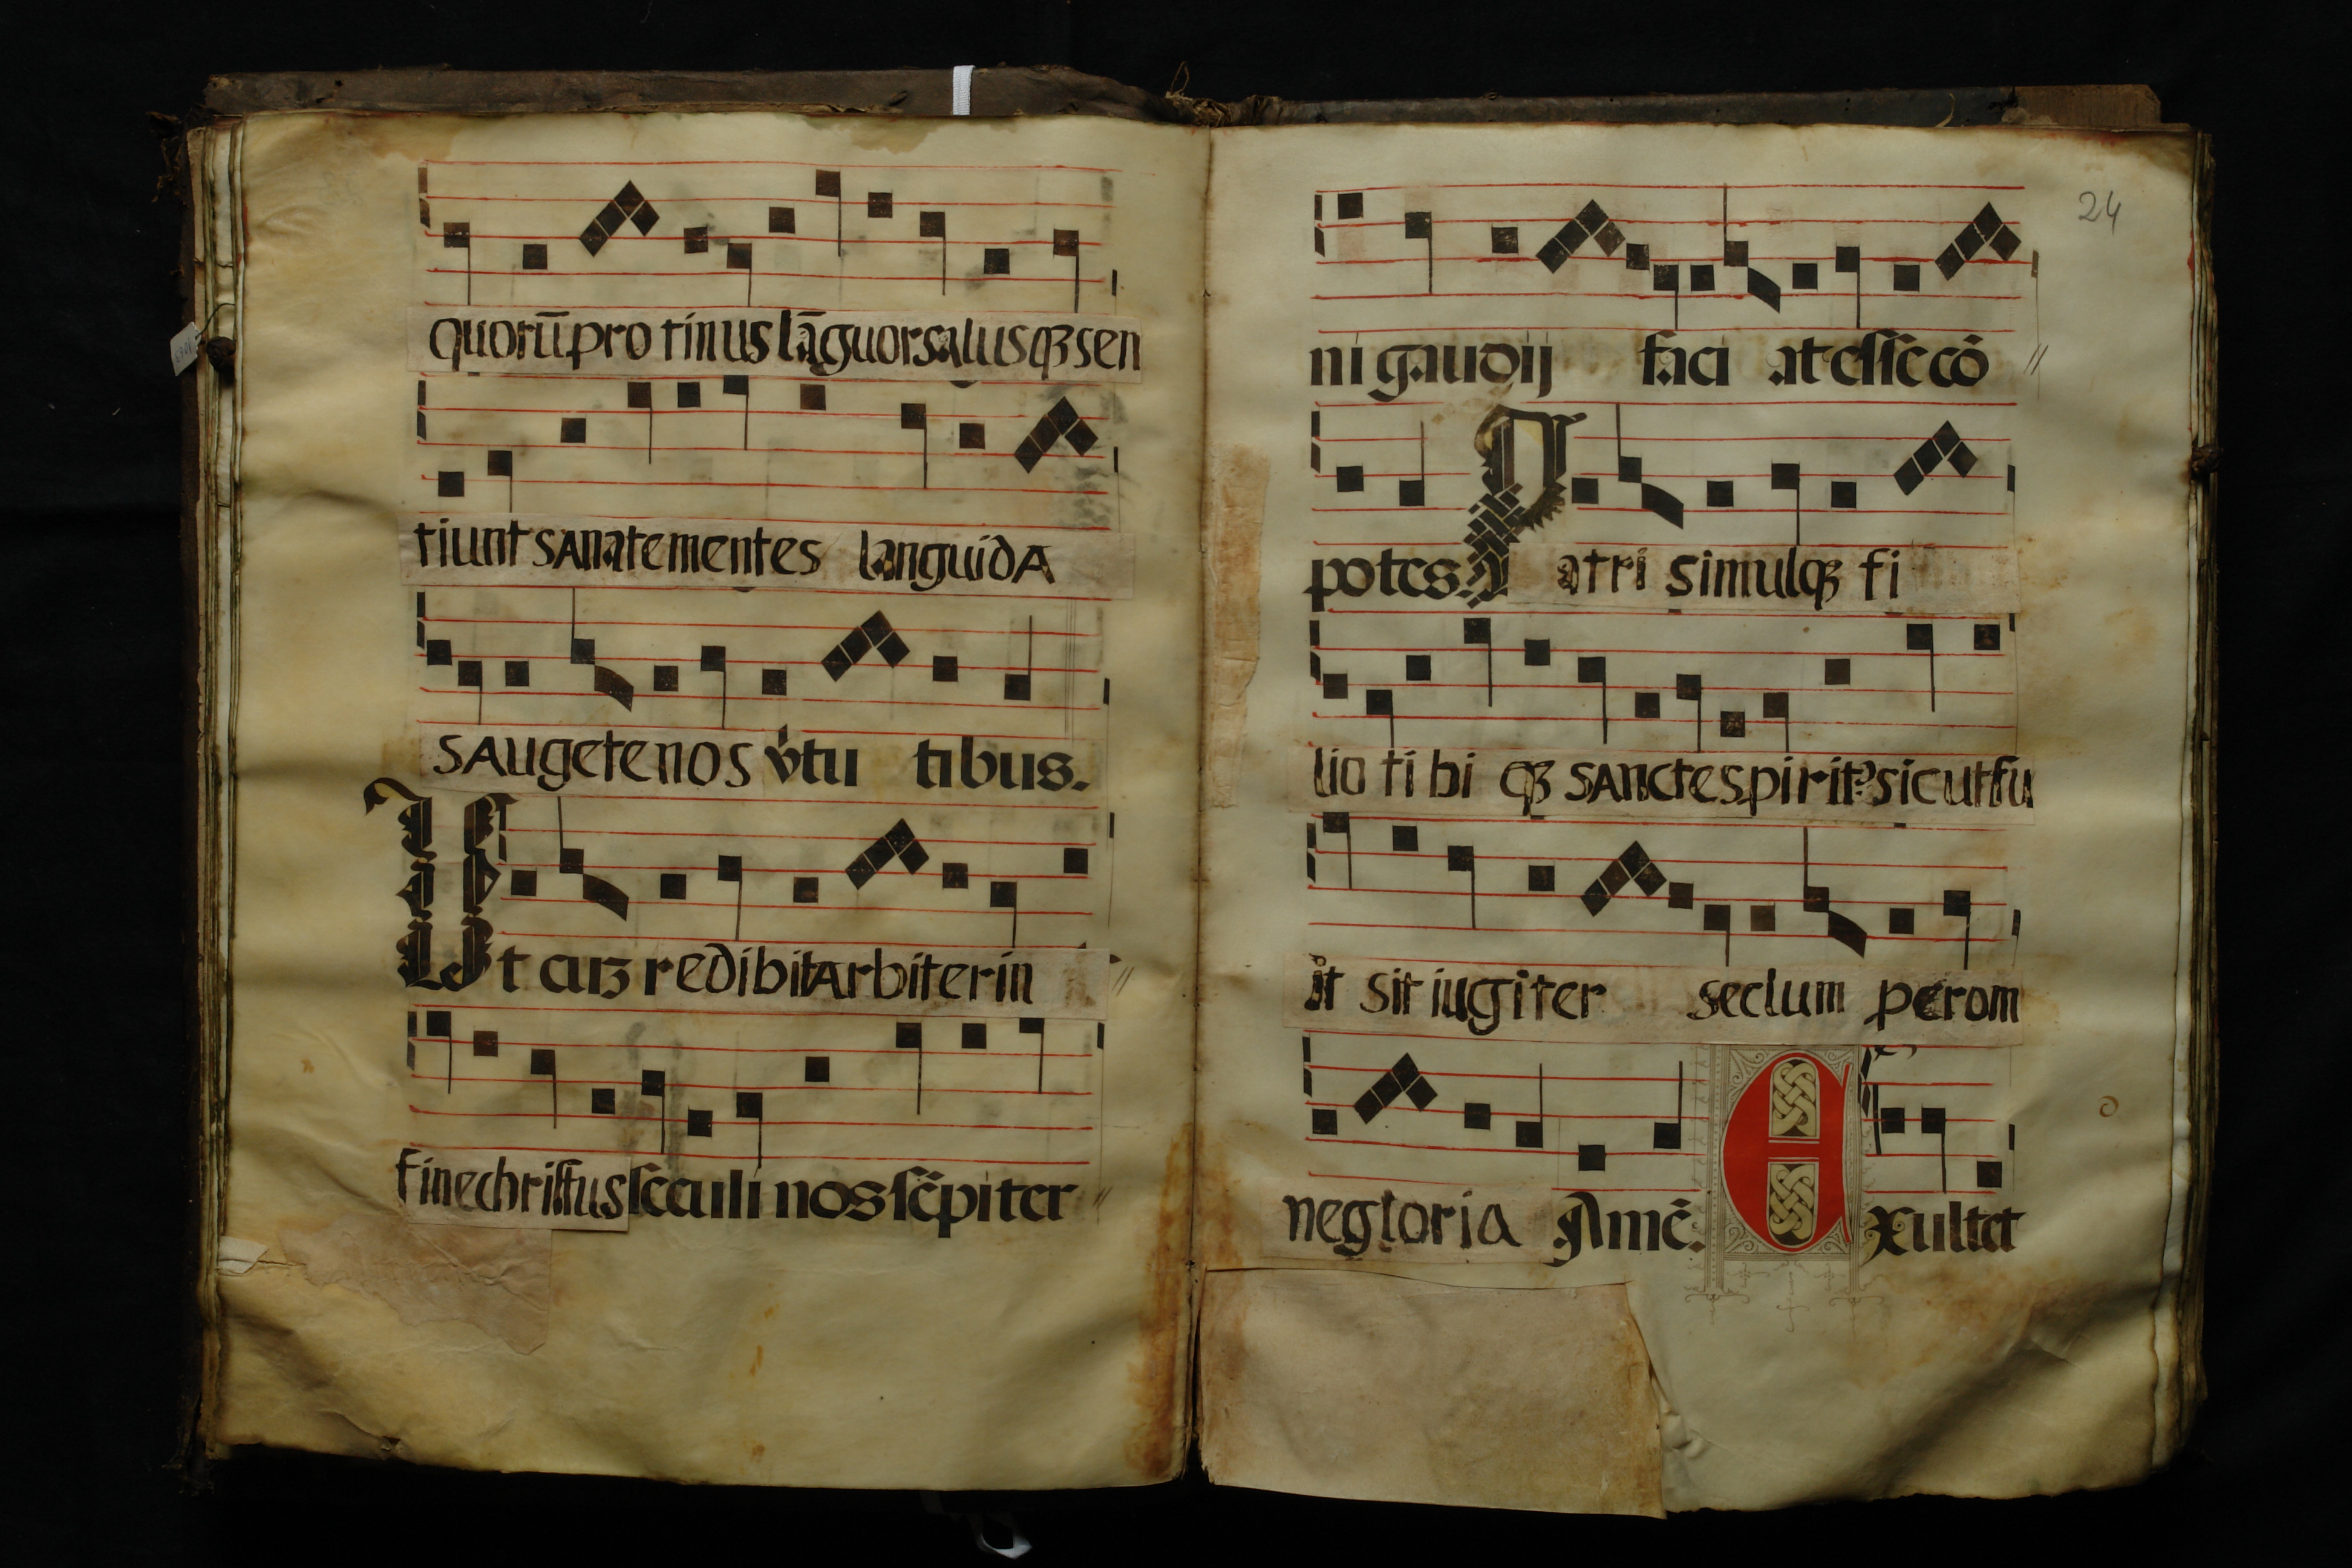 quorū pro tinus lāguor salusqꝫ sen
tiunt sanate mentes languida
s augete nos v̓tu tibus.
Ut cuꝫ redibit arbiter in
fine christus sęculi nos sēpiter
24
ni gaudij faci at esse cō
potes. Patri simulqꝫ fi
lio tibi qꝫ sancte spiritꝰ sicut fu
it sit iugiter seclum per om
ne gloria Amē. Exultet